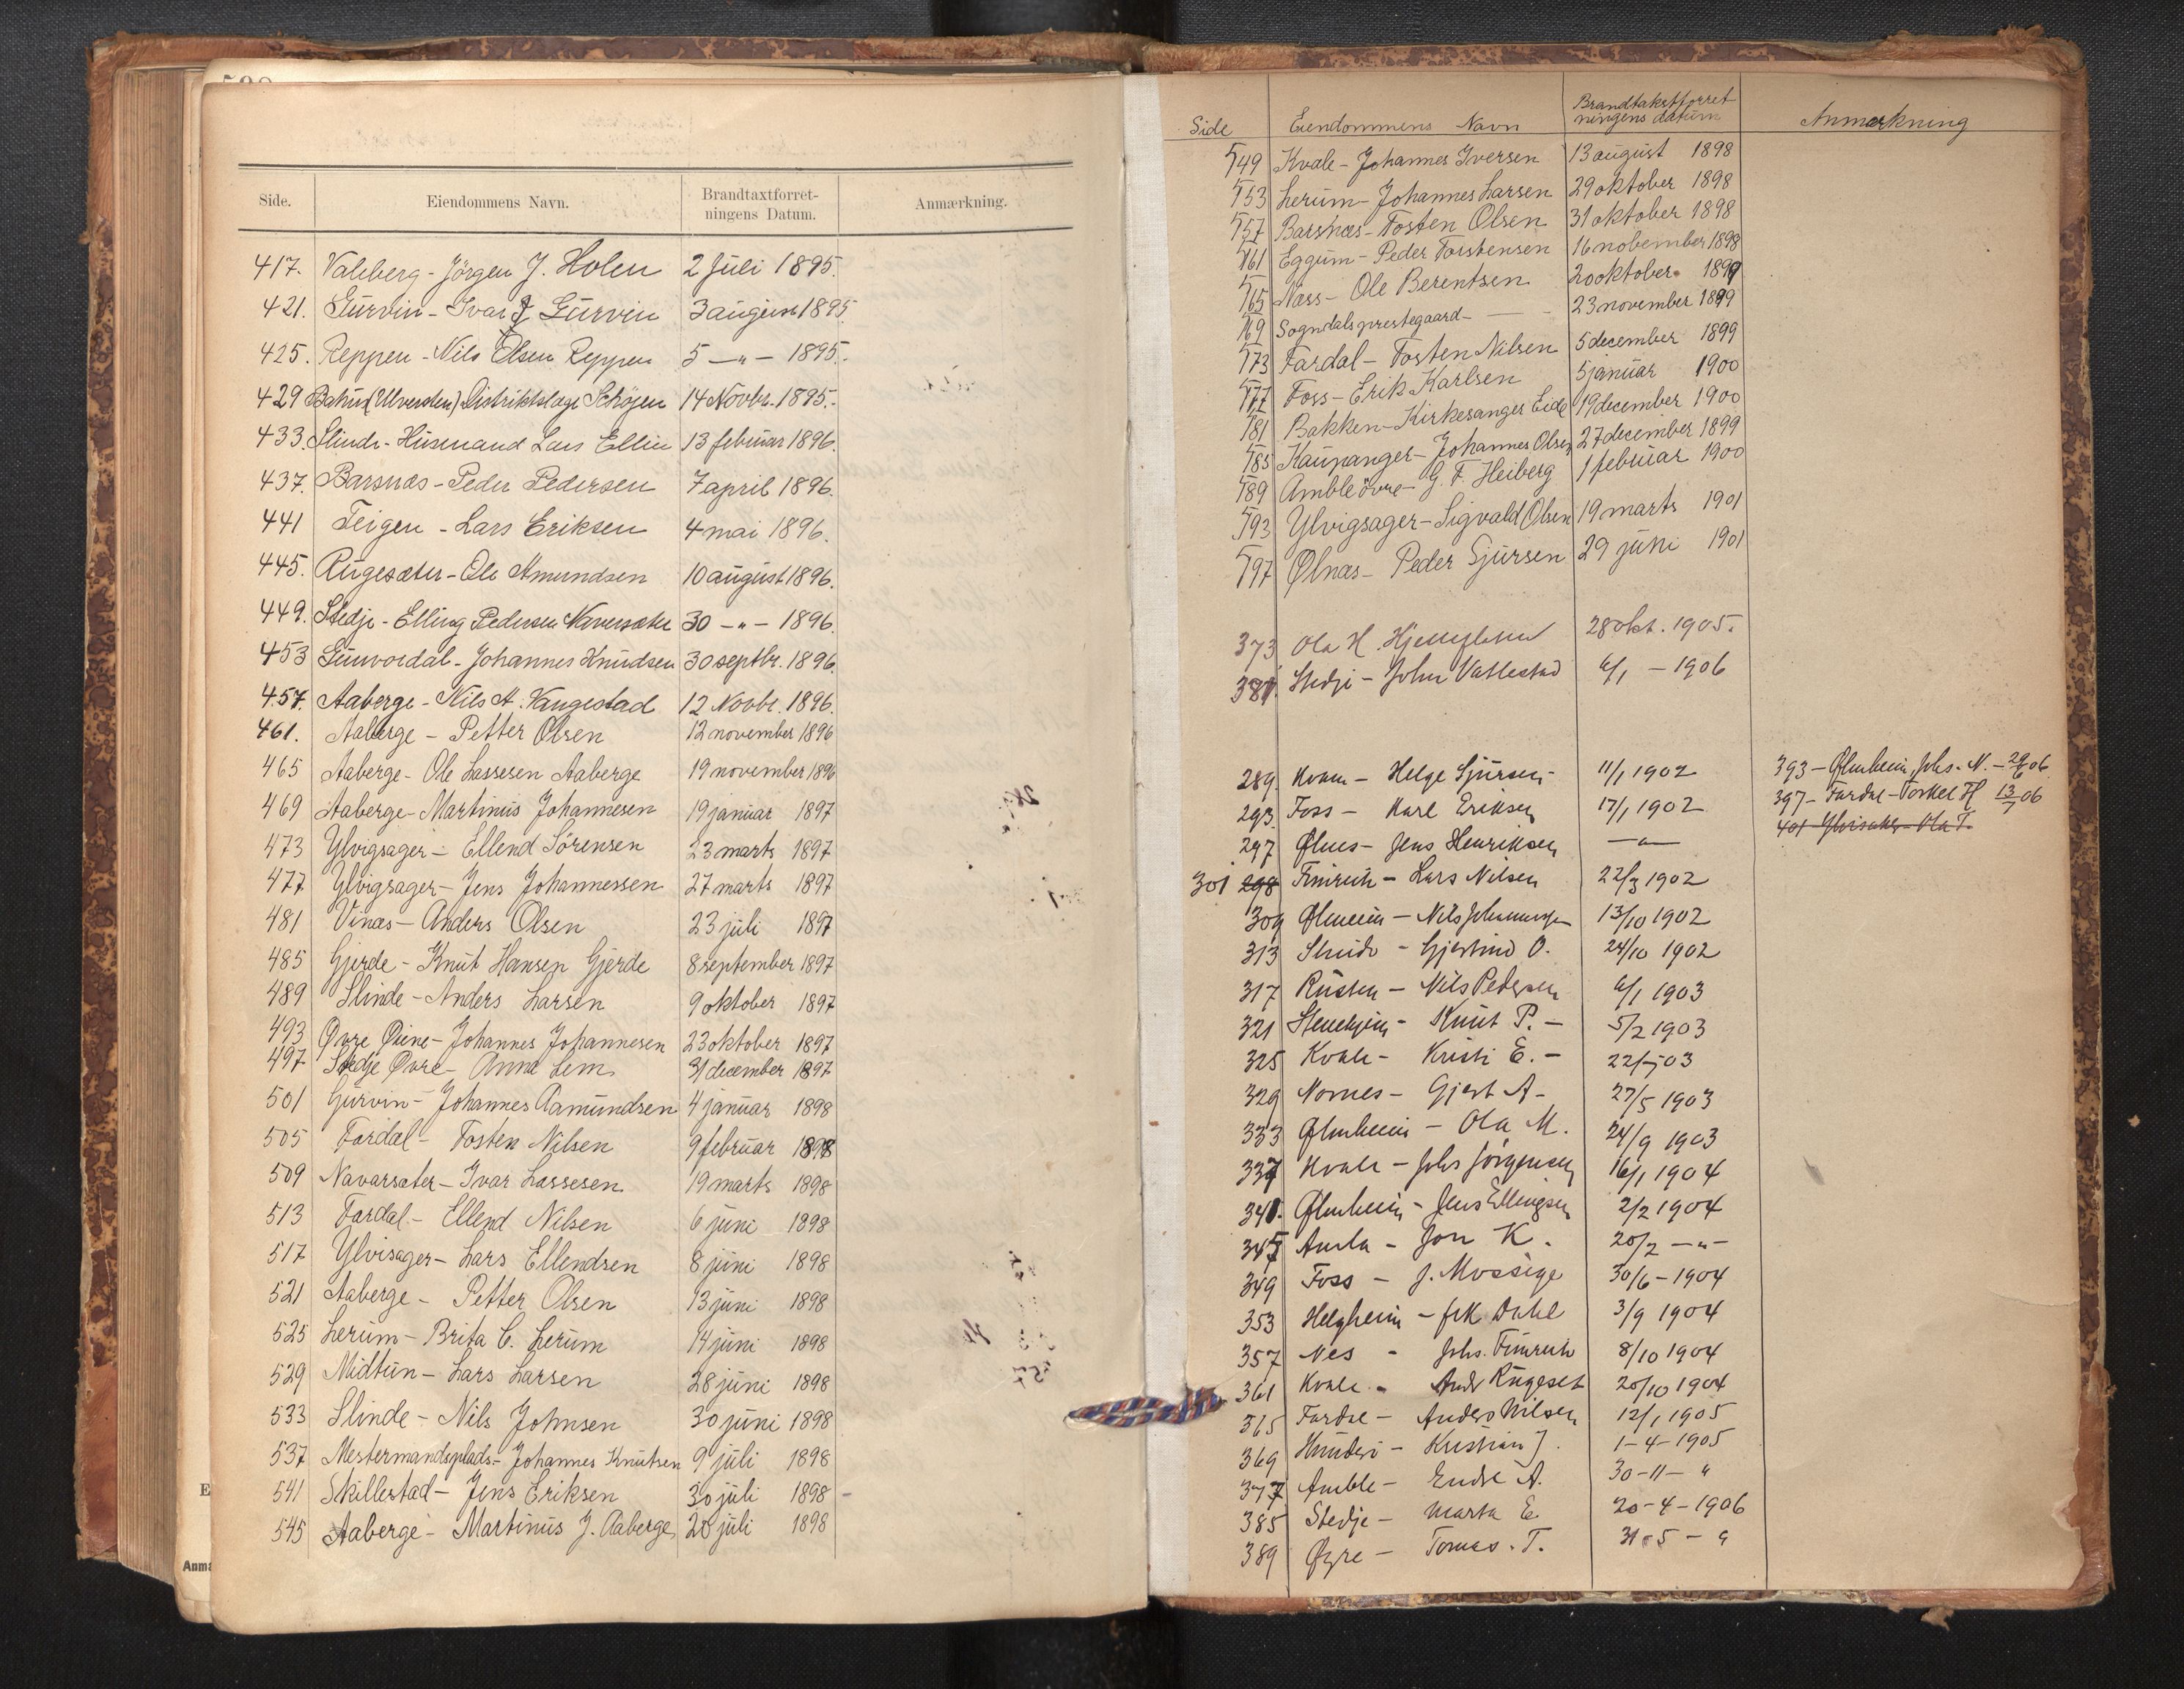 Side. Eiendommens Navn. Brandtaxtforret-
ningens Datum. Anmærkning.
417. Valeberg - Jörgen J. Holen 2 Juli 1895.
421. Gurvin - Ivar J Gurvin 3 august 1895
425. Reppen - Nils Olsen Reppen 5 -„- 1895.
429 (Ulversten) Distriktslæge Schöjen 14 Novbr. 1895.
433. Slinde - Husmand Lars Ellin 13 februar 1896.
437. Barsnæs - Peder Pedersen 7 april 1896.
441 Teigen - Lars Eriksen 4 mai 1896.
445. Rugesæter - Ole Amundsen 10 august 1896.
449. Stedje - Elling Pedersen Navarsæter 30 -„- 1896.
453 Gunvordal - Johannes Knudsen 30 septbr. 1896.
457. Aaberge - Nils A. Vangestad 12 Novbr. 1896.
461. Aaberge - Petter Olsen 12 november 1896
465 Aaberge - Ole Lassesen Aaberge 19 november 1896
469 Aaberge - Martinus Johannesen 19 januar 1897
473 Ylvigsager - Ellend Sörensen 23 marts 1897
477 Ylvigsager - Jens Johannessen 27 marts 1897
481 Vinæs - Anders Olsen 23 juli 1897
485 Gjerde - Knut Hansen Gjerde 8 september 1897
489 Slinde - Anders Larsen 9 oktober 1897
493 Øvre Øine - Johannes Johannesen 23 oktober 1897
497 Stedje Øvre - Anna Lem 31 december 1897
501 Gurvin - Johannes Aamundsen 4 januar 1898
505 Fardal - Tosten Nilsen 9 februar 1898
509 Navarsæter - Ivar Lassesen 19 marts 1898
513 Fardal - Ellend Nilsen 6 juni 1898
517 Ylvisager - Lars Ellendsen 8 juni 1898
521 Aaberge - Petter Olsen 13 juni 1898
525 Lerum - Brita C. Lerum 14 juni 1898
529 Midtun - Lars Larsen 28 juni 1898
533 Slinde - Nils Johnsen 30 juni 1898
537 Mestermandsplads - Johannes Knutsen 9 juli 1898
541 Skillestad - Jens Eriksen 30 juli 1898
545 Aaberge - Martinus J. Aaberge 20 juli 1898
Side Eiendommens Navn Brandtakstforret-
ningens datum Anmerkning
549 Kvale - Johannes Iversen 13 august 1898
553 Lerum - Johannes Larsen 29 oktober 1898
557 Barsnæs - Tosten Olsen 31 oktober 1898
561 Eggum - Peder Torstensen 16 nobember 1898
565 Næss - Ole Berentsen 20 oktober 1899
569 Sogndals prestegaard - 23 november 1899
573 Fardal - Tosten Nilsen 5 december 1899
577 Foss - Erik Karlsen 5 januar 1900
581 Bakken - Kirkesanger Eide 19 december 1900
585 Kaupanger - Johannes Olsen 27 december 1899
589 Amble övre - G. F. Heiberg 1 februar 1900
593 Ylvigsager - Sigvald Olsen 19 marts 1901
597 Ølnæs - Peder Sjursen 29 juni 1901
373 Ola H. 28 okt. 1905.
381 Stedje - John Vatlestad 6/1 - 1906
289. Kvam - Helge Sjursen 11/1 1902 393 - Ølmheim, Johs. N. - 29/6 06
293. Foss - Karl Eriksen 17/1 1902 397 - Fardal - Torkel H 13/7 06
297 Ølnes - Jens Henriksen -„- 401 Ylvisaker - Ola T.
301 298 Fimreite - Lars Nilsen 22/3 1902
309 Ølmheim - Nils Johannesen 13/10 1902
313 Slinde - Gjertrud O. 24/10 1902
317 Rusten - Nils Pedersen 6/1 1903
321 Stenehjem - Knut P. - 5/2 1903
325 Kvale - Kristi E. - 22/5 03
329 Nornes - Gjert A - 27/5 1903
333 Ølmheim - Ola M. 24/9 1903
337 Kvale - Johs Jörgensen 16/1 1904
341. Ølmheim - Jens Ellingsen 2/2 1904
345 Amla - Jon K. 20/2 -„-
349 Foss - J. Mossige 30/6 - 1904
353 Helgheim - frk Dahl 3/9 1904
357 Nes - Johs. Fimreite 8/10 1904
361 Kvale - Andr Rugeset 20/10 1904
365 Fardal - Anders Nilsen 12/1 1905
369 Hunderi - Kristian J. 1-4-1905
377 Amble - Endre A. 30-11- „
385 Stedje - Marta E 20-4-1906
389 Øyre - Tomas. T. 31-5- „